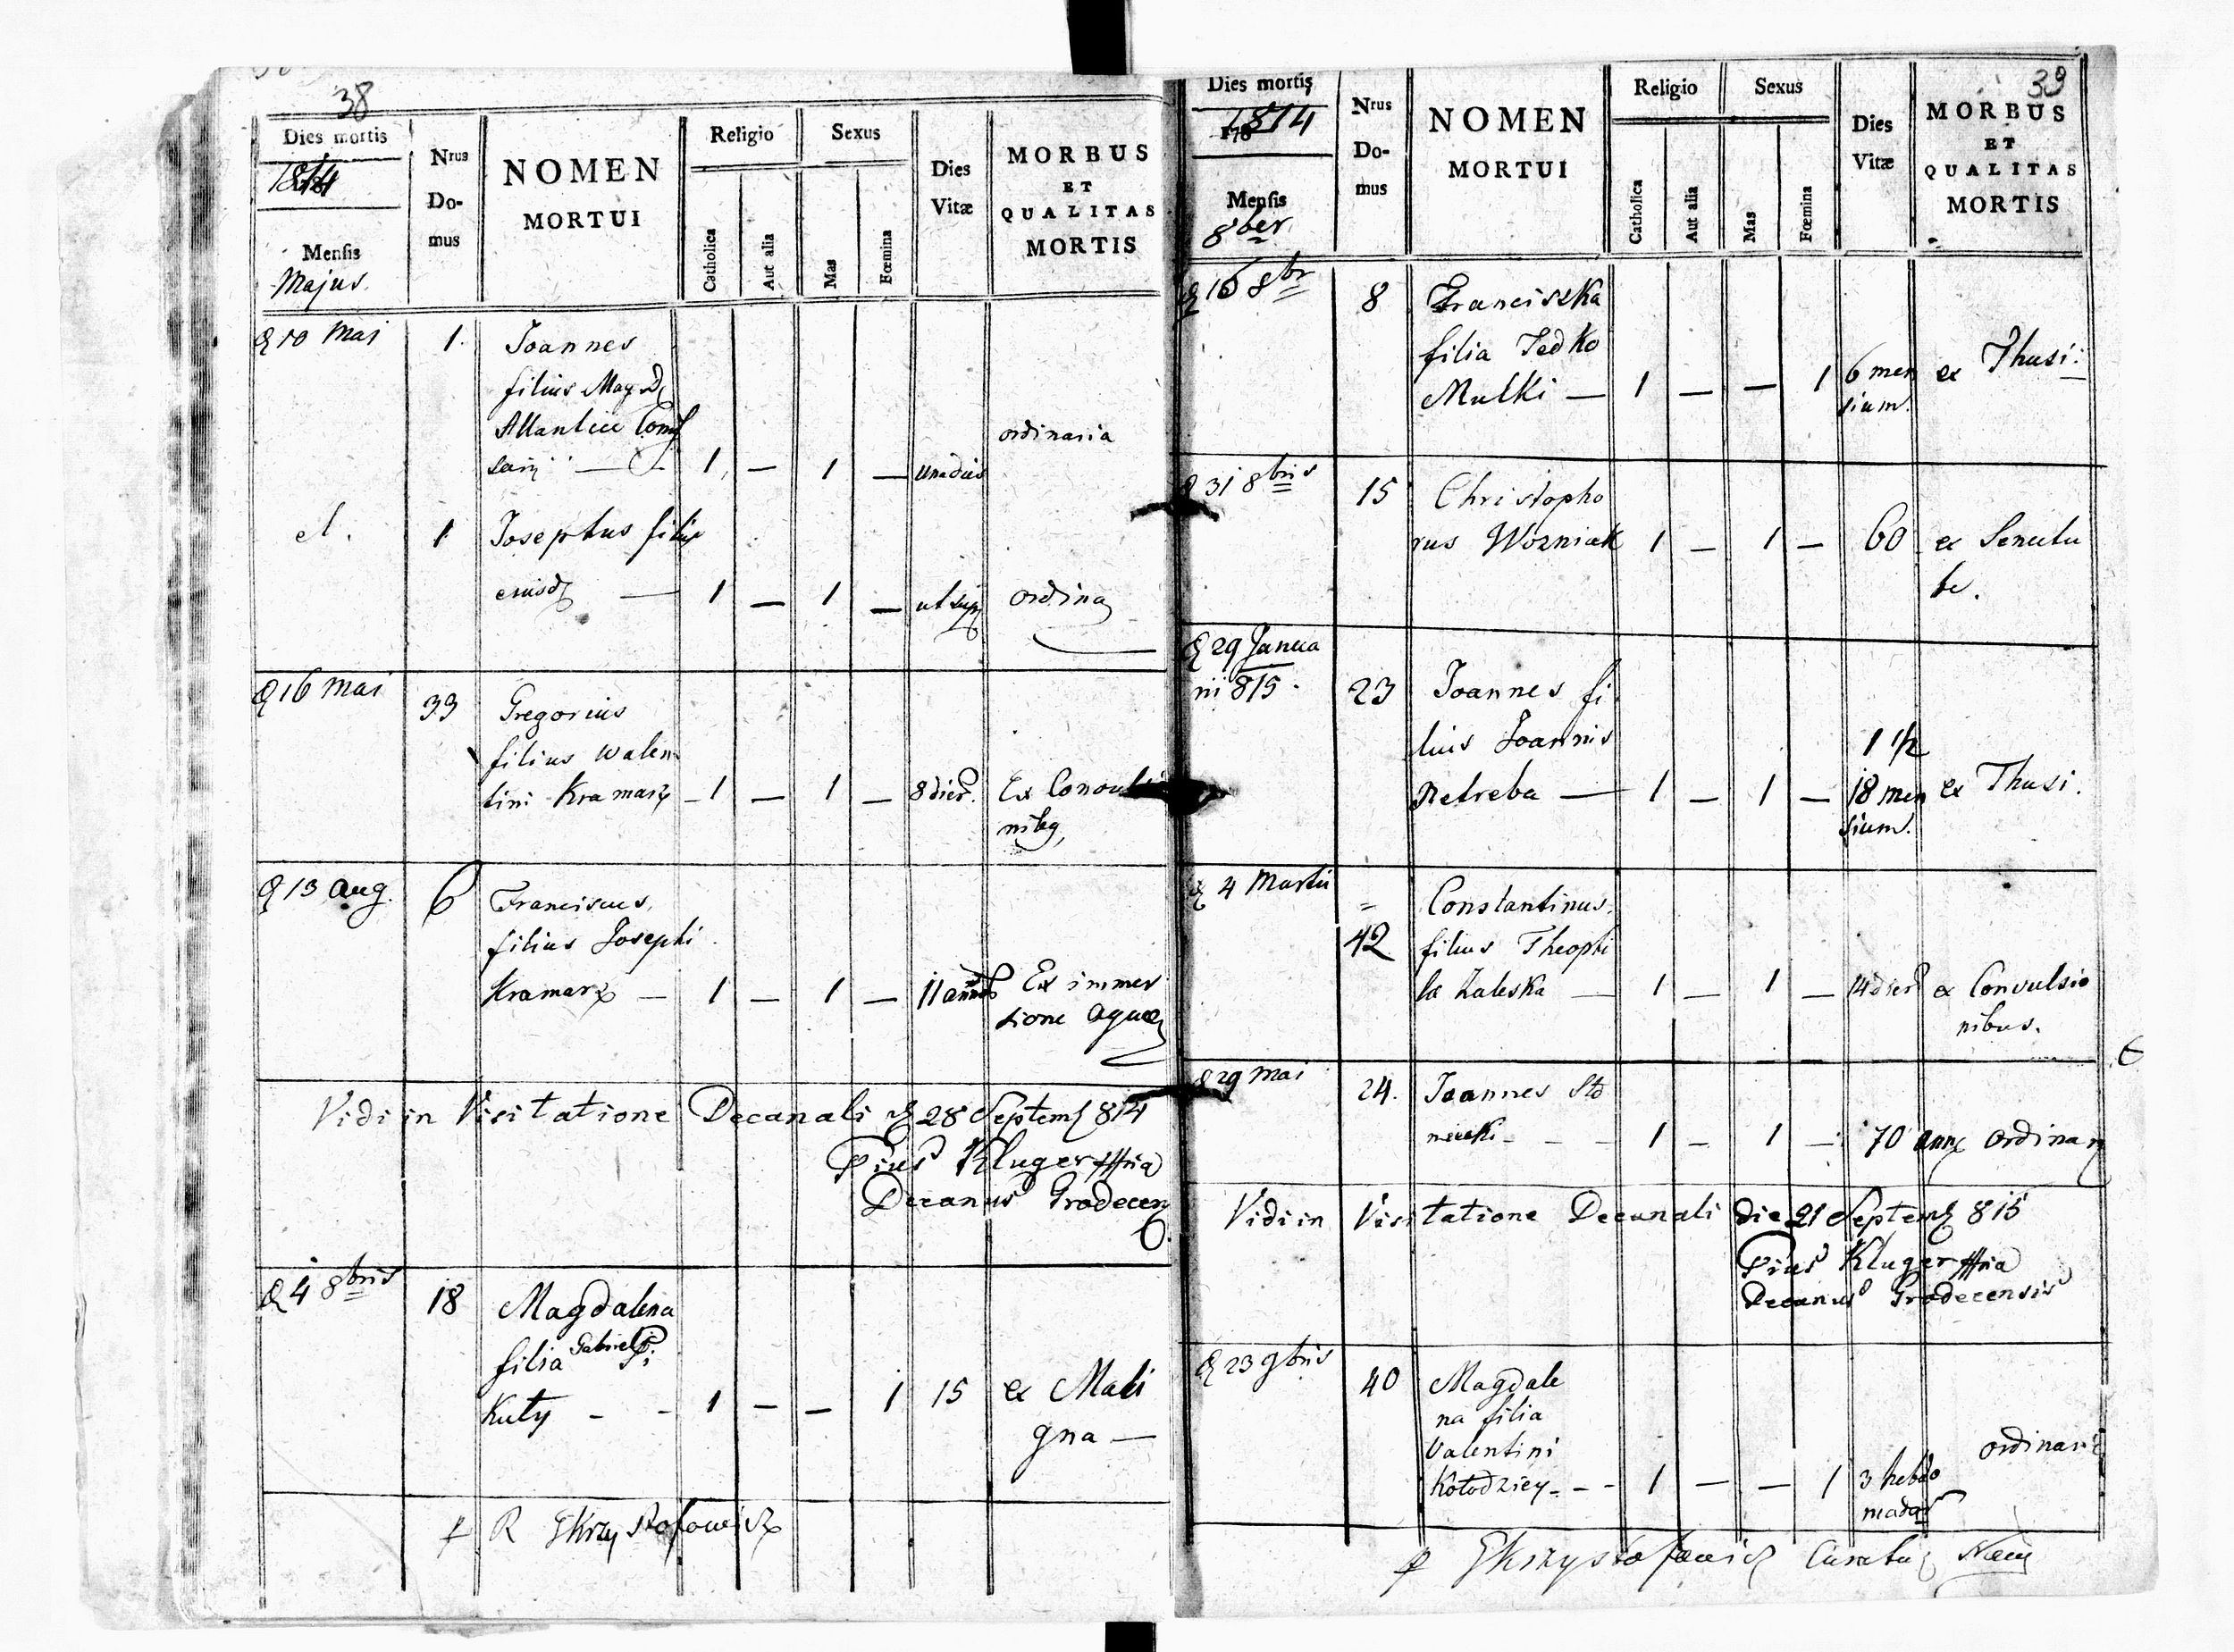 38
Dies mortis
1814
Mensis
Majus.
Nrus
Do-
mus
NOMEN
MORTUI
Religio
Catholica
Aut alia
Sexus
Mas
Fœmina
Dies
Vitæ
MORBUS
ET
QUALITAS
MORTIS
10 Mai 1. Joannes
filius
1 — 1 — una dies ordinaria
1 Josephus filius
eiusd — 1 — 1 — ut sup ordina
16 Mai 33 Gregorius
filius Walen
tini Kramarz — 1 — 1 — 8 dier. Ex Convulsio
nibq
13 Aug. 6 Franciscus
filius Josephi
Kramarz — 1 — 1 — 11 annor Ex immer
sione aquae
Vidi in Visitatione Decanali 28 Septem 814
Pius Kluger mpria
Decanus Grodecen
4 8bris 18 Magdalena
filia Gabrielis
Kuty - - 1 — — 1 15 ex Mali
gna —
R GKrzysztofowicz
39
Dies mortis
178 1814
Mensis
8ber
Nrus
Do-
mus
NOMEN
MORTUI
Religio
Catholica
Aut alia
Sexus
Mas
Fœmina
Dies
Vitæ
MORBUS
ET
QUALITAS
MORTIS
16 8br 8 Franciszka
filia Fedko
Mulki — 1 — — 1 6 men ex Thusi:
sium.
31 8bris 15 Christopho
rus Wozniak 1 — 1 — 60 ex Senectu
te.
29 Janua
rii 815. 23 Joannes fi
lius Joannis
1 1/2
Netreba — 1 — 1 — 18 men ex Thusi.
sium.
4 Martii = Constantinus
42 filius Theophi
la Zaleska — 1 — 1 — 14 dier ex Convulsio
nibus.
29 Mai 24. Joannes Sto
- - 1 — 1 — 70 ann ordinar
Vidi in Visitatione Decanali die 21 Septem 815
Pius Kluger mpria
Decanus Grodecensis
23 9bris 40 Magdale
na filia
Valentini
Kołodziey - - - 1 — — 1 3 hebdo ordinaria
madar
GKrzysztofowicz Curatus